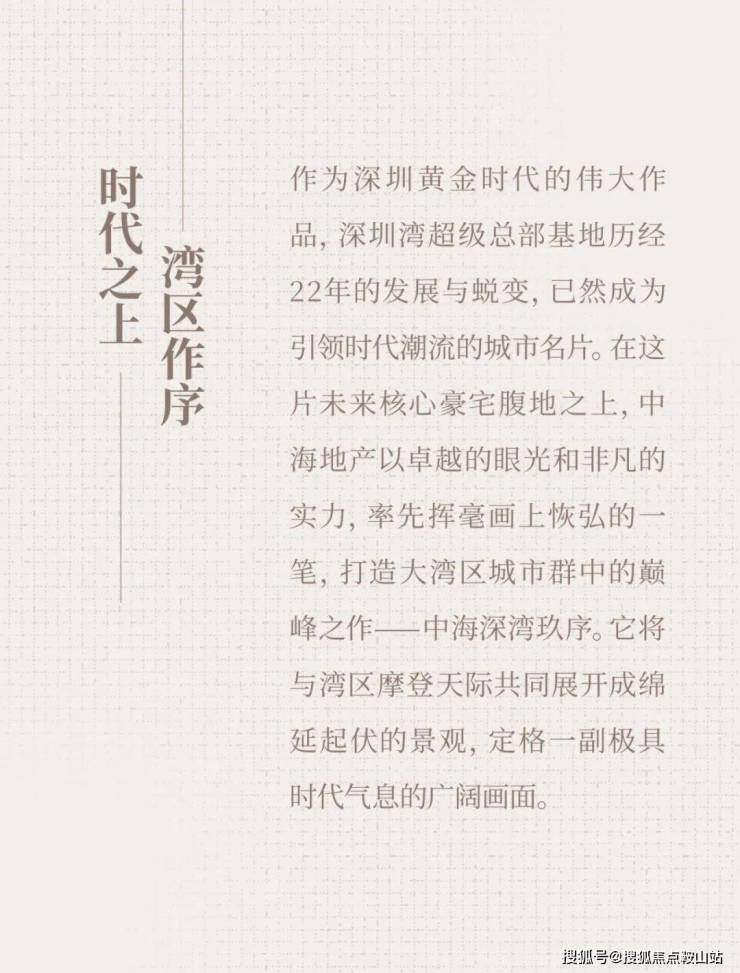 时代之上
湾区作序
作为深圳黄金时代的伟大作
品，深圳湾超级总部基地历经
22年的发展与蜕变，已然成为
引领时代潮流的城市名片。在这
片未来核心豪宅腹地之上，中
海地产以卓越的眼光和非凡的
实力，率先挥毫画上恢弘的一
笔，打造大湾区城市群中的巅
峰之作——中海深湾玖序。它将
与湾区摩登天际共同展开成绵
延起伏的景观，定格一副极具
时代气息的广阔画面。
搜狐号@搜狐焦点鞍山站